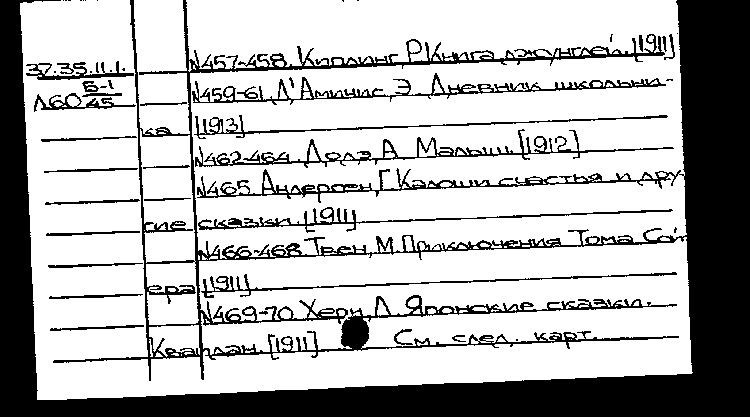 37.35.11.1.
Л60 Б-1/45
№457-458. Киплинг, Р. Книга джунглей. [1911]
№459-61. Д'Аминис, Э. Дневник школьни-
ка [1913]
№462-464. Додэ, А. Малыш. [1912]
№465. Андерсен, Г. Калоши счастья и дру-
гие сказки. [1911]
№466-468. Твен, М. Приключения Тома Сой-
ера [1911].
№469-70. Херн, Л. Японские сказки.
Квайдан. [1911] См. след. карт.